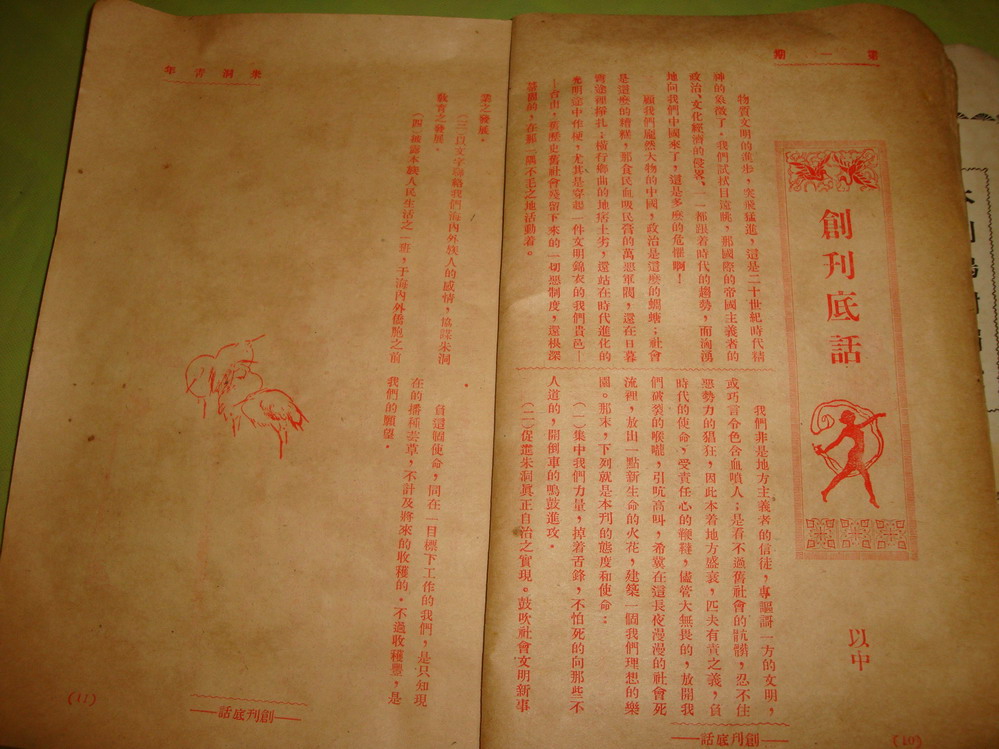 第一期
創刊底話
以中
物質文明的進步，突飛猛進，這是二十世紀時代精
神的象徵了，我們試拭目遠眺，那國際的帝國主義者的
政治、文化經濟的侵畧、一一都跟着時代的趨勢，而洶湧
地向我們中國來了，這是多麽的危懼啊！
顧我們龐然大物的中國，政治是這麽的蜩螗；社會
是這麽的糟糕，那食民血吸民膏的萬惡軍閥，還在日暮
窮途裡掙扎；橫行鄉曲的地痞土劣，還站在時代進化的
光明途中作梗，尤其是穿起一件文明錦衣的我們貴邑—
—台山，舊歷史舊社會殘留下來的一切惡制度，還根深
蒂固的，在那一隅不毛之地活動着。
我們非是地方主義者的信徒，專謳哥一方的文明，
或巧言令色含血噴人；是看不過舊社會的骯髒，忍不住
惡勢力的猖狂，因此本着地方盛衰，匹夫有責之義，負
時代的使命，受責任心的鞭韃，儘管大無畏的，放開我
們破裂的喉嚨，引吭高叫，希冀在這長夜漫漫的社會死
流裡，放出一點新生命的火花，建築一個我們理想的樂
園。那末，下列就是本刊的態度和使命：
（一）集中我們力量，掉着舌鋒，不怕死的向那些不
人道的，開倒車的鳴鼓進攻。
（二）促進朱洞眞正自治之實現。鼓吹社會文明新事
創刊底話
(10)
朱洞青年
業之發展。
（三）頁文字聯絡我們海內外族人的感情，協謀朱洞
敎育之發展。
（四）披露本族人民生活之一班，于海內外僑胞之前
。
負這個使命，同在一目標下工作的我們，是只知現
在的播種芸草，不計及將來的收穫的。不過收穫豐，是
我們的願望。
創刊底話
(11)